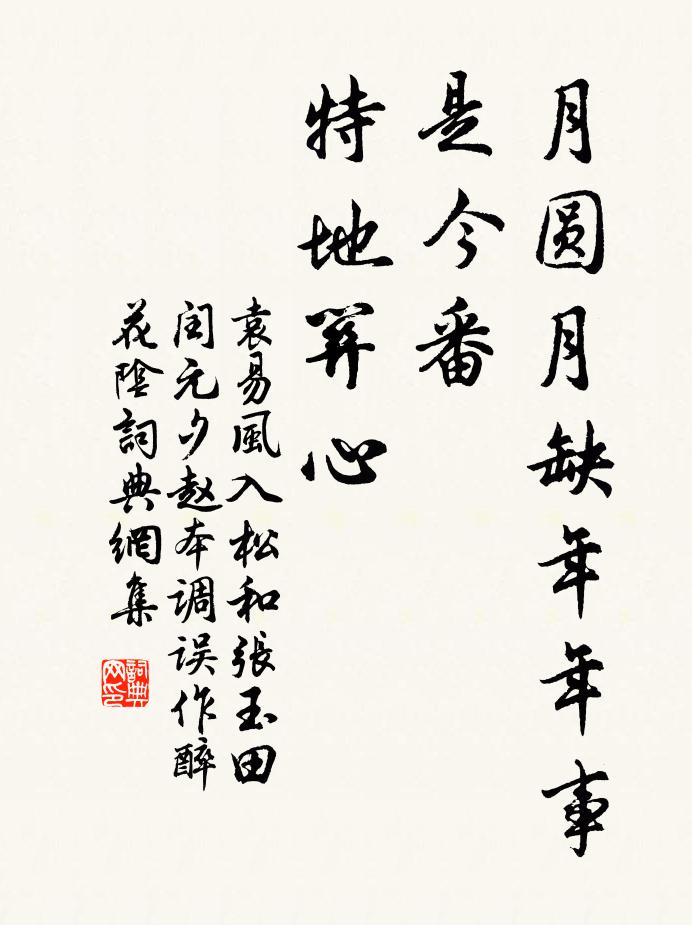 月圆月缺年年事
是今番
特地関心
袁易風入松和張玉田
闰元夕赵本调误作醉
花陰詞典網集
詞典网印